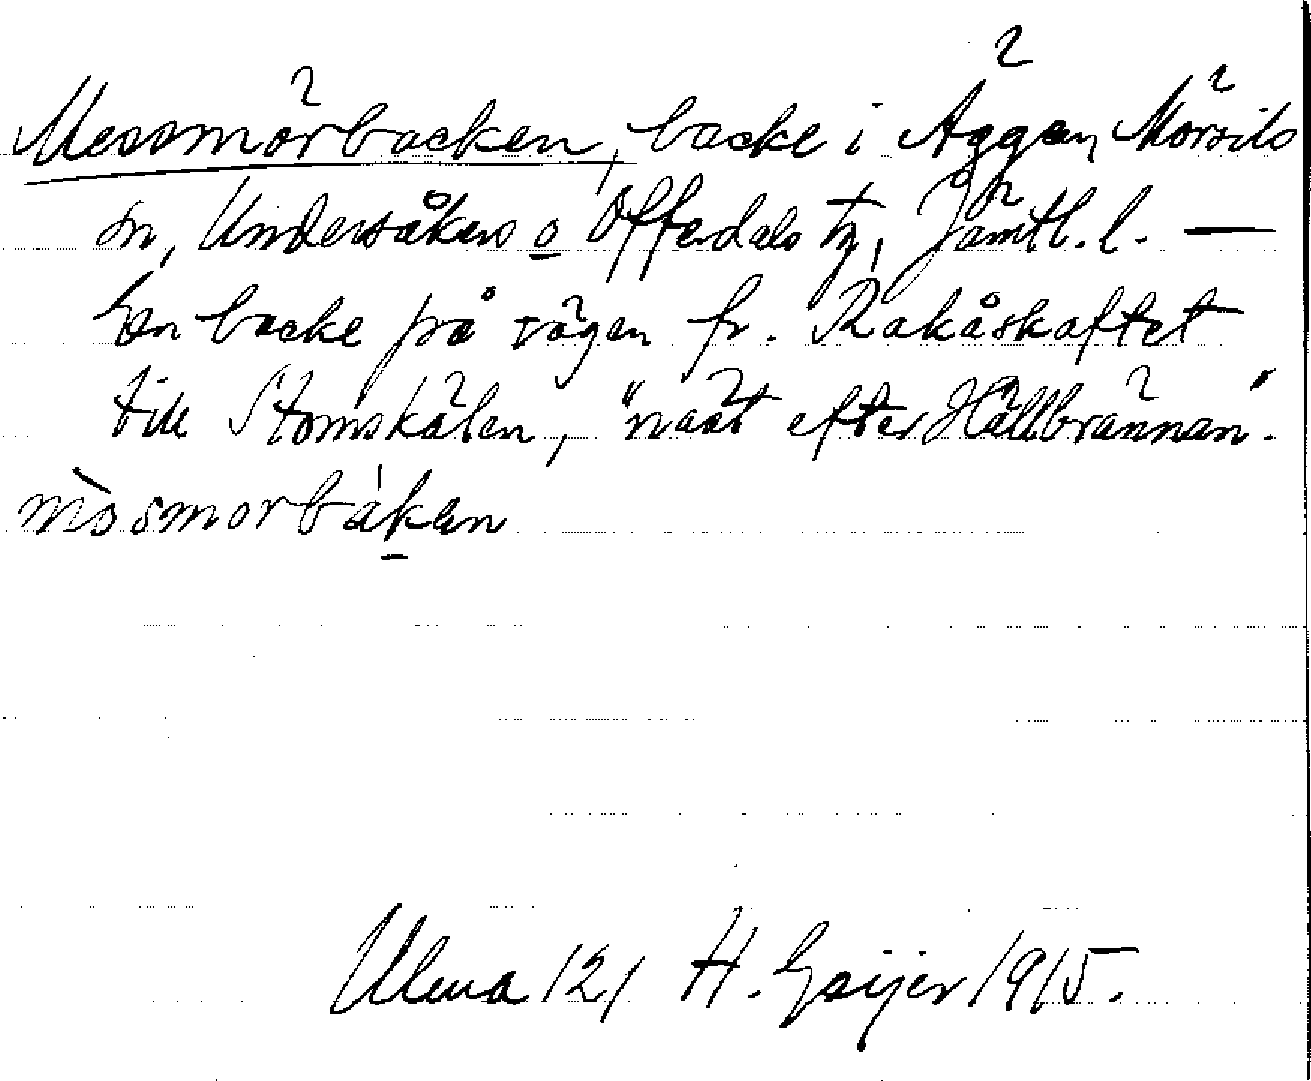 Messmörbacken, backe i Äggen, Mörsils
sn, Undersåkers o Offerdals tg, Jämtl. l. —
En backe på vägen fr. Rakåskaftet
till Stomskälen, "näst efter Hällbrännan".
mòsmorbákan
Ulma 121 H. Geijer 1915.